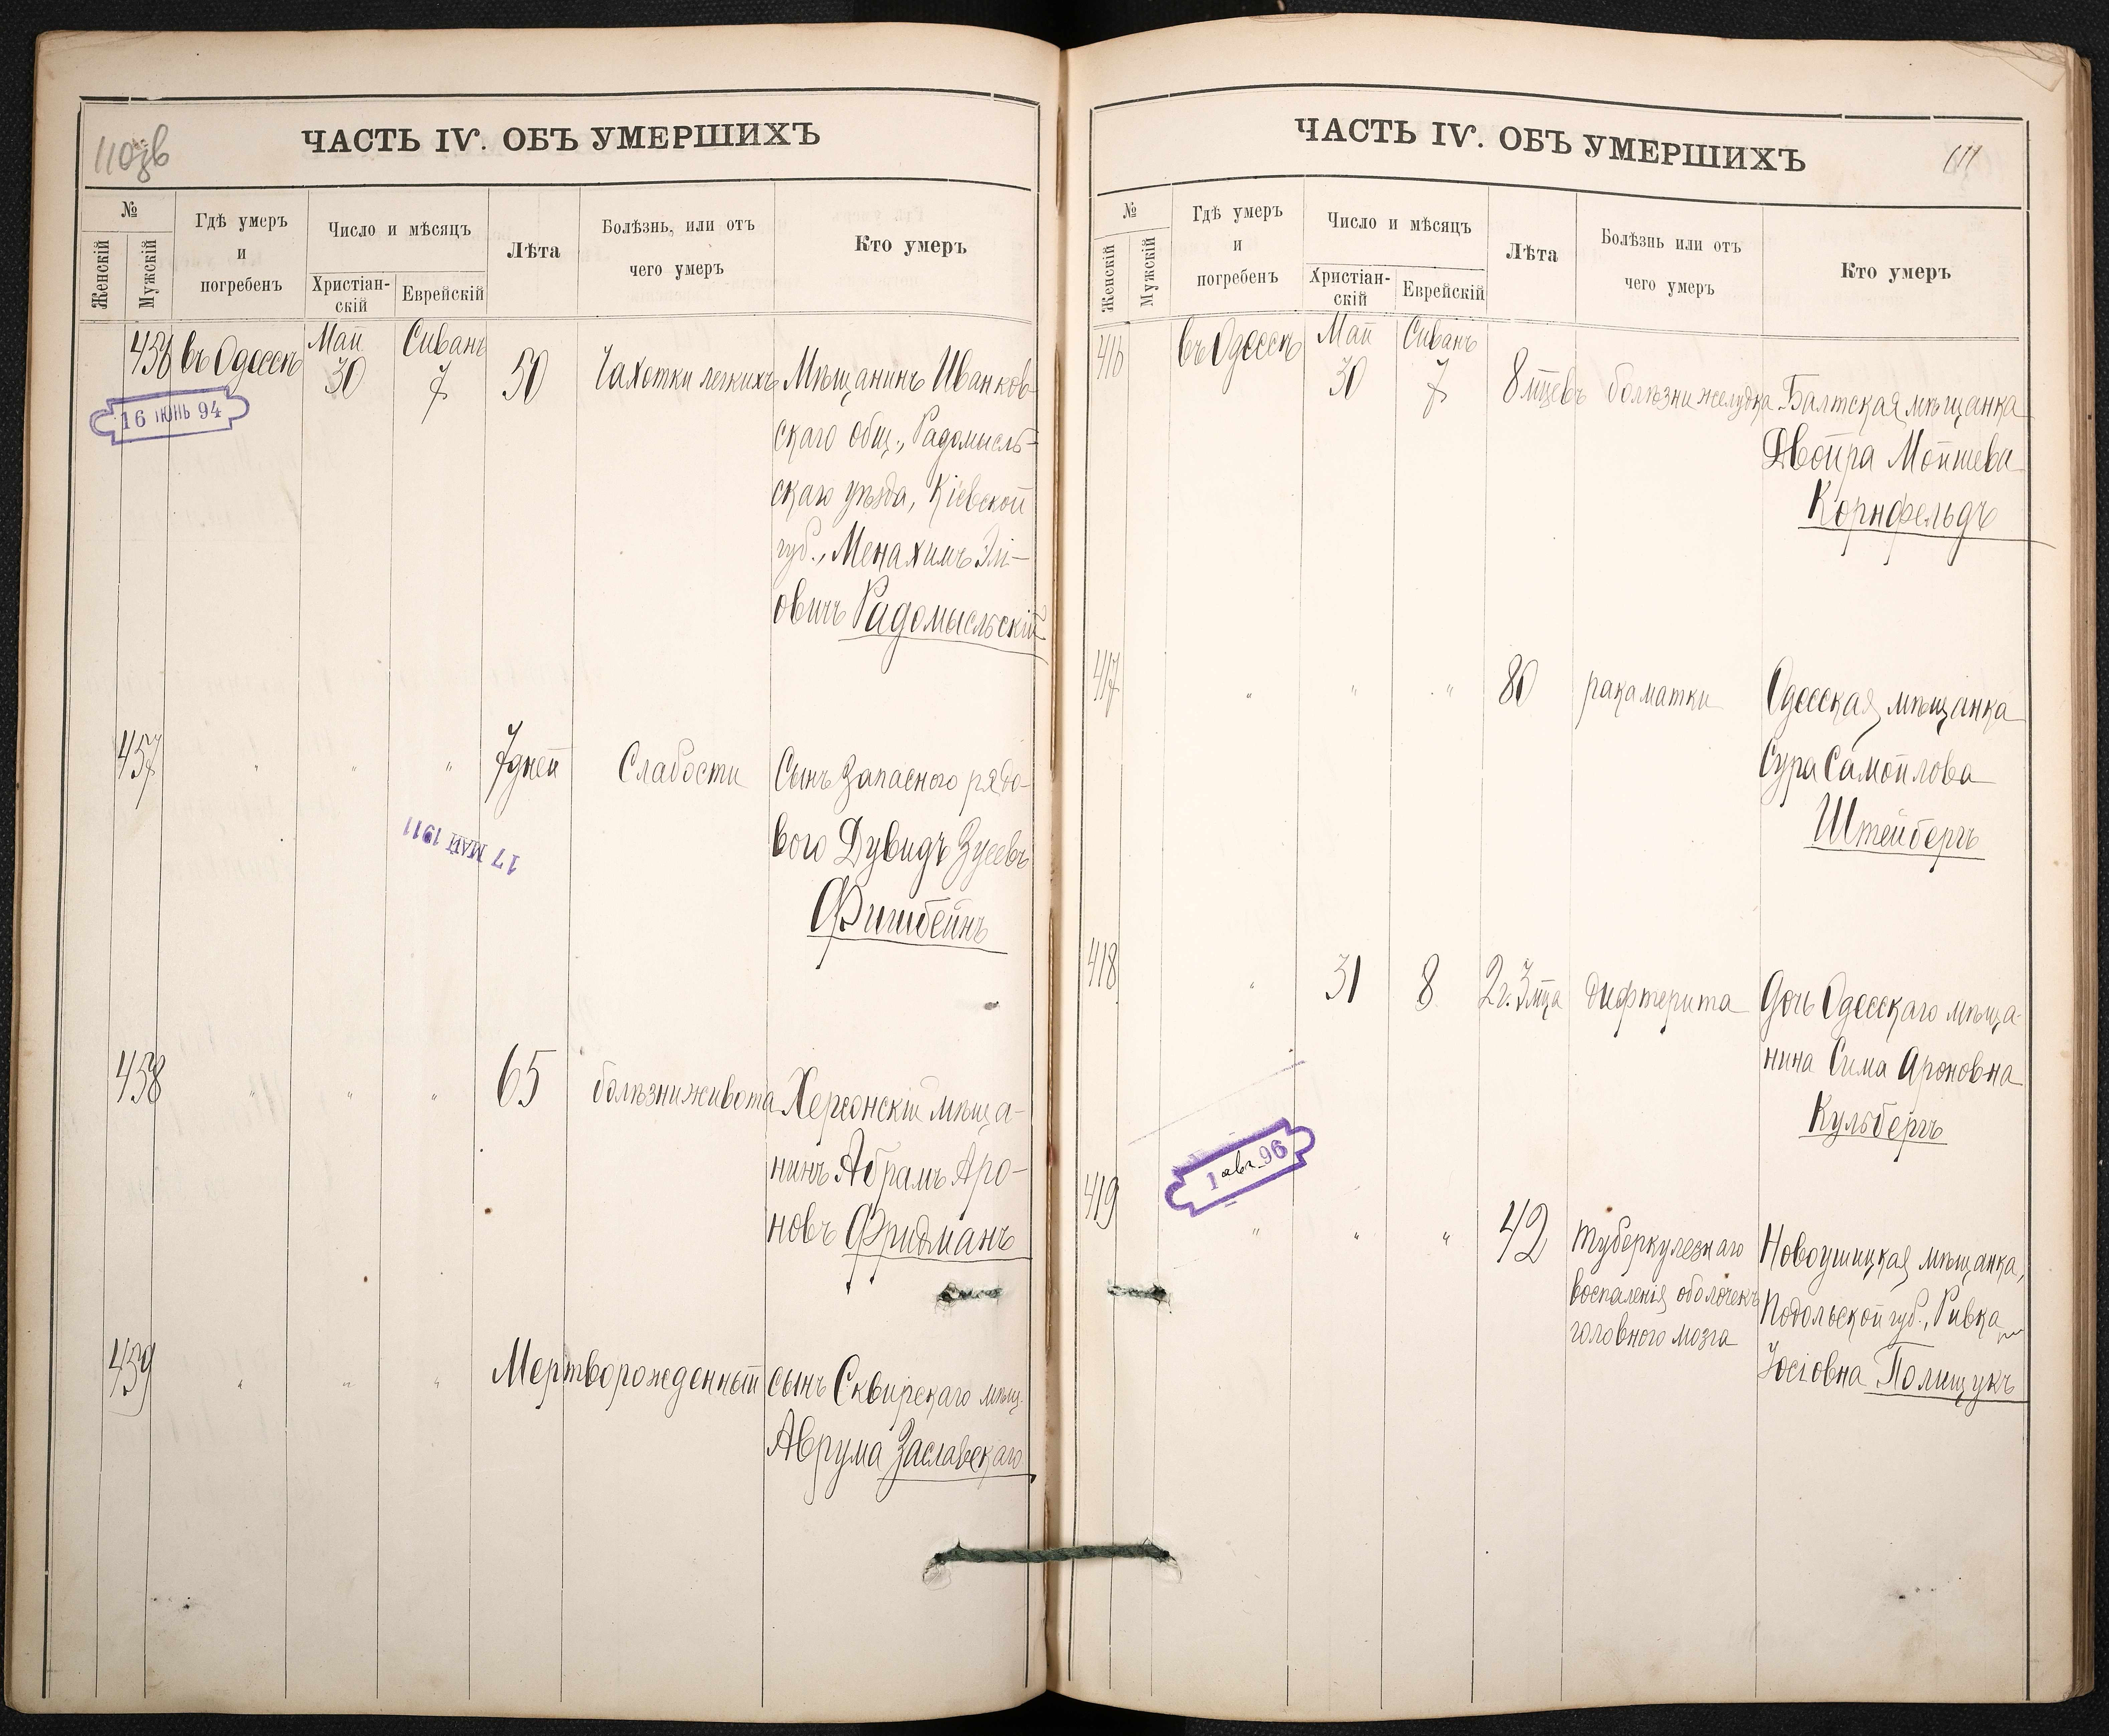 110 зв
ЧАСТЬ IV. ОБЪ УМЕРШИХЪ
№
Женскій
Мужскій
Гдѣ умеръ
и
погребенъ
Число и мѣсяцъ
Христіан-
скій
Еврейскій
Лѣта
Болѣзнь, или отъ
чего умеръ
Кто умеръ
456 въ Одессѣ Май 30 Сиванъ 7 50 Чахотки легкихъ Мѣщанинъ Иванков-
скаго общ., Радомысль-
скаго уѣзда, Кіевской
губ., Менахимъ Элі-
овичъ Радомысльскій
16 ІЮНЬ 94
457 " " " 7 дней Слабости Сынъ запасного рядо-
вого Дувидъ Зусевъ
Фишбейнъ
17 МАЙ 1911
458 " " " 65 болѣзни живота Херсонскій мѣща-
нинъ Абрамъ Аро-
новъ Фридманъ
459 " " " Мертворожденный сынъ Сквирскаго мѣщ.
Аврума Заславскаго
ЧАСТЬ IV. ОБЪ УМЕРШИХЪ
111
№
Женскій
Мужскій
Гдѣ умеръ
и
погребенъ
Число и мѣсяцъ
Христіан-
скій
Еврейскій
Лѣта
Болѣзнь или отъ
чего умеръ
Кто умеръ
416 въ Одессѣ Май 30 Сиванъ 7 8 мцевъ болѣзни желудка Балтская мѣщанка
Двойра Мойшева
Корнфельдъ
417 " " " 80 рака матки Одесская мѣщанка
Сура Самойлова
Штейбергъ
418 " 31 8 2 г. 3 мца дифтерита Дочь Одесскаго мѣща-
нина Сима Ароновна
Кульбергъ
1 авг. 96
419 " " " 42 туберкулезнаго Новоушицкая мѣщанка,
воспаленія оболочекъ Подольской губ., Ривка
головного мозга Іосіовна Полищукъ